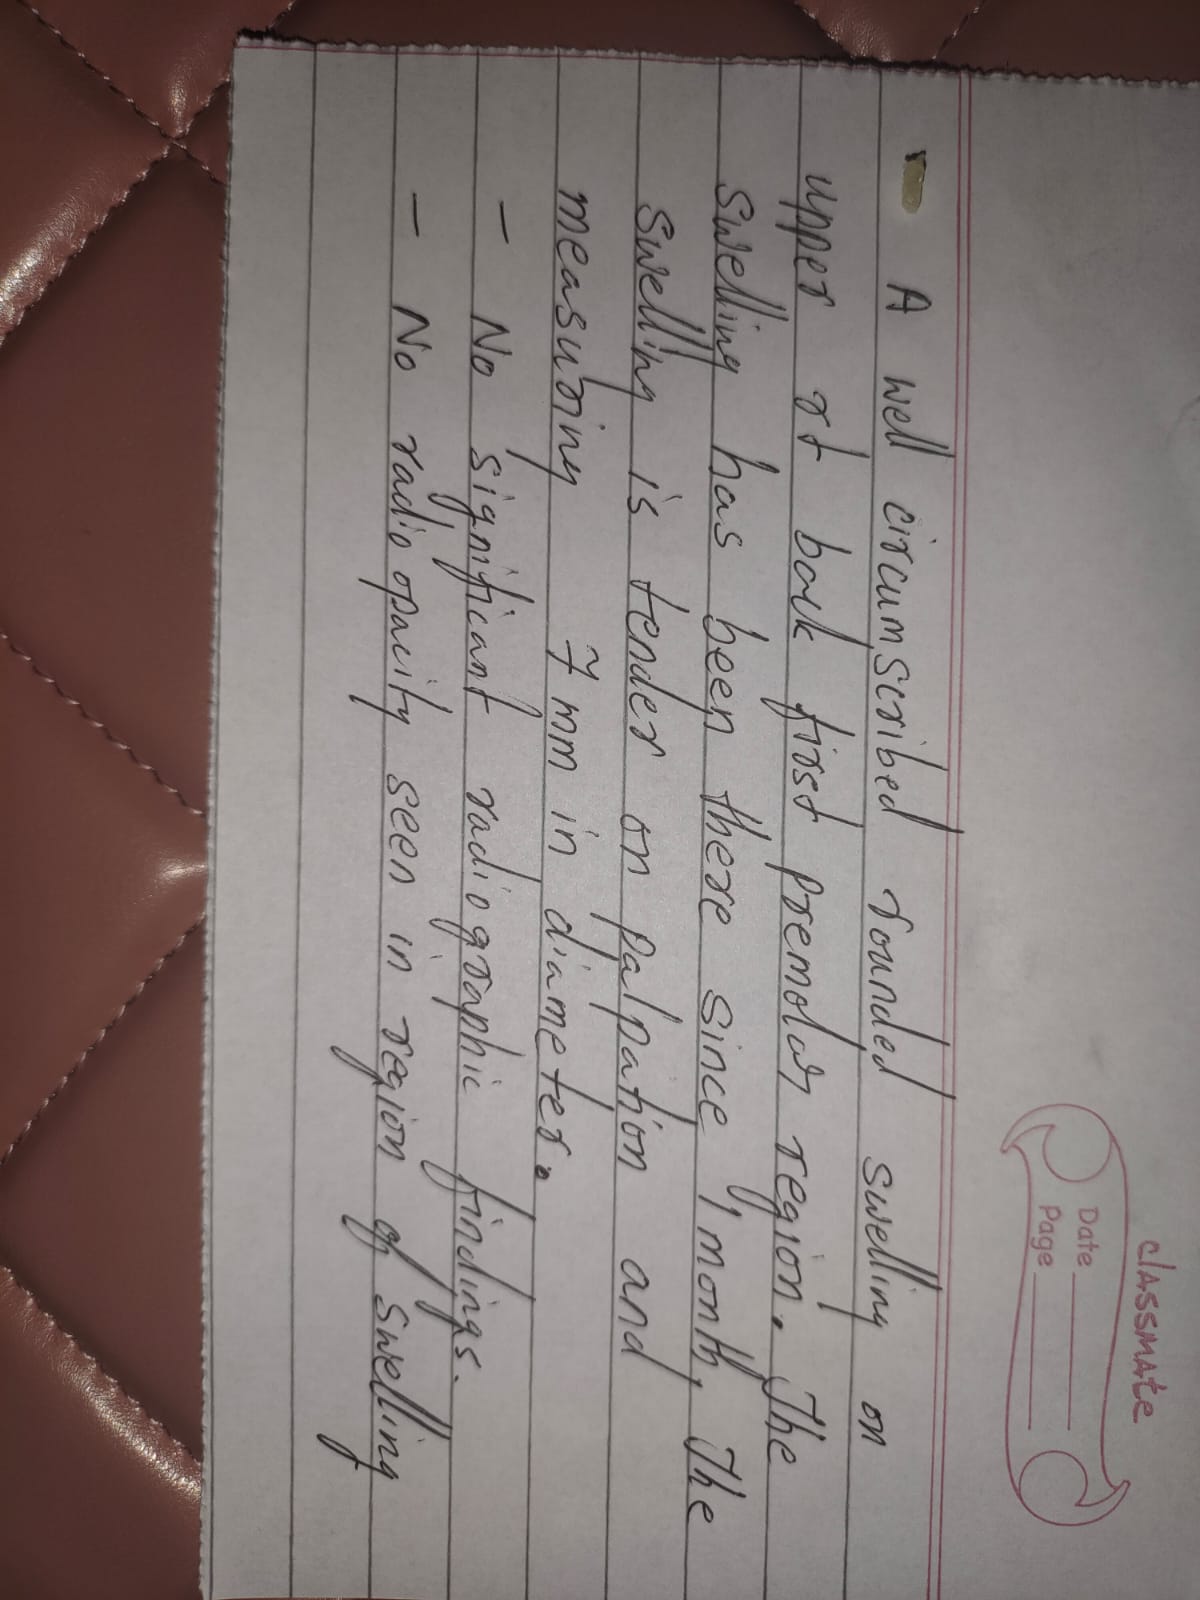 classmate
Date
Page
A well circumscribed rounded swelling on
upper rt back first premolar region. The
swelling has been there since 1 month, The
swelling is tender on palpation and
measuring 7 mm in diameter.
- No significant radiographic findings.
- No radio opacity seen in region of swelling